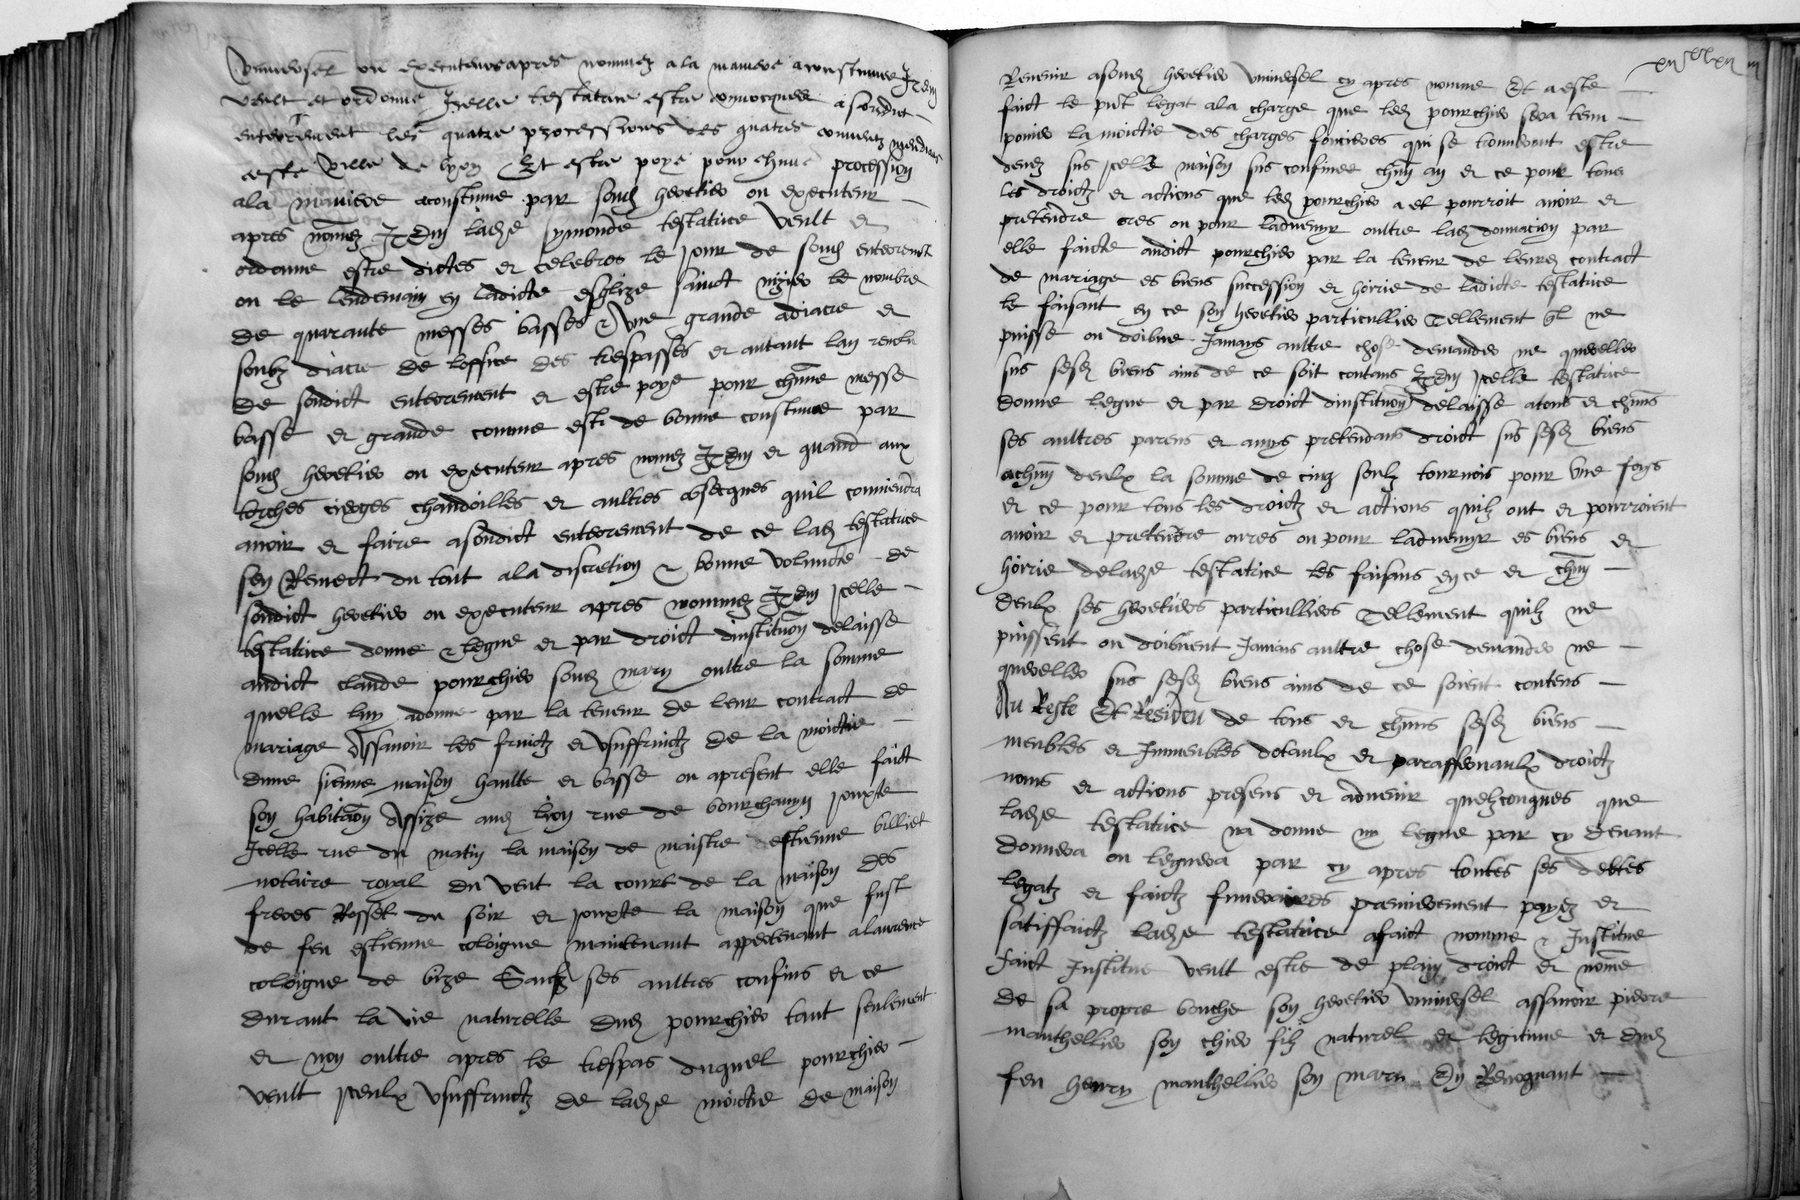 universel ou executeurs apres nommez a la maniere acoustumee Item
veult et ordonne Icelle testatrice estre convocquees a sondict
enterrement les quatre processions des quatres convents mendians
ceste ville de lyon Et estre poye pour chune procession
a la maniere acoustume par sond heretier ou executeur
apres nomez Item ladte symonde testatrice veult et
ordonne estre dictes et celebres le jour de sond enterremt
ou le lendemain en ladicte esglize sainct nizier le nombre
de quarante messes basses & une grande a diacre et
soubz diacre de loffice des trespasses et autant lan revolu
de sondict enterrement et estre poye pour chune messe
basse et grande comme est de bonne coustume par
sond heretier ou executeur apres nomez Item et quand aux
torches cierges chandoilles et aultres obseques quil conviendra
avoir et faire a sondict enterrement de ce lad testatrice
sen Remect du tout a la discretion & bonne volunte de
sondict heretier ou executeur apres nommez Item icelle
testatrice donne & legue et par droict dinstitution delaisse
audict claude pourchier sond mary oultre la somme
quelle luy a donne par la teneur de leur contract de
mariage Assavoir les fruictz et usuffruictz de la moictie
dune sienne maison haulte et basse ou a present elle faict
son habitaon Assize aud lion rue de bourchanin jouxte
Icelle rue du matin la maison de maistre estienne billiet
notaire royal du vent la court de la maison des
freres Rosset du soir et jouxte la maison que fust
de feu estienne coloigne maintenant appertenant a laurence
coloigne de bize Saufz ses aultres confins et ce
durant la vie naturelle dud pourchier tant seulement
et non oultre apres le trespas duquel pourchier
veult iceulx usuffruictz de ladte moictie de maison
Revenir a sond heretier universel cy apres nomme Et a este
faict le pnt legat a la charge que led pourchier sera tenu
poier la moictie des charges foncieres qui se trouveront estre
deues sus icelle maison sus confinee chun an et ce pour tous
les droictz et actions que led pourchier a et pourroit avoir et
pretendre ores ou pour ladvenir oultre lad donnacion par
elle faicte audict pourchier par la teneur de leurd contract
de mariage es biens succession et hoirrie de ladicte testatrice
le faisant en ce son heretier particullier Tellement ql ne
puisse ou doibve Jamays aultre chose demander ne quereller
sus sesd biens ains de ce soit contans Item icelle testatrice
donne legue et par droict dinstitution delaisse a tous et chuns
ses aultres parens et amys pretendans droict sus sesd biens
a chun deulx la somme de cinq soulz tournois pour une foys
et ce pour tous les droictz et actions quilz ont et pourroient
avoir et pretendre ores ou pour ladvenyr es biens et
hoirrie de ladte testatrice les faisans en ce et chun
deulx ses heretiers particulliers Tellement quilz ne
puissent ou doibvent Jamais aultre chose demander ne
quereller sus sesd biens ains de ce soient contens
Au Reste Et Resideu de tous et chuns sesd biens
meubles et Immeubles dotaulx et paraffernaulx droictz
noms et actions presens et advenir quelzconques que
ladte testatrice na donne ny legue par cy devant
donnera ou leguera par cy apres toutes ses debtes
legatz et faictz funeraires premierement payez et
satiffaictz ladte testatrice a faict nomme & Institue
faict Institue veult estre de plain droict et nome
de sa propre bouche son heretier universel assavoir pierre
manthellier son chier filz naturel et legitime et dud
feu henry manthellier son mary En Revoquant